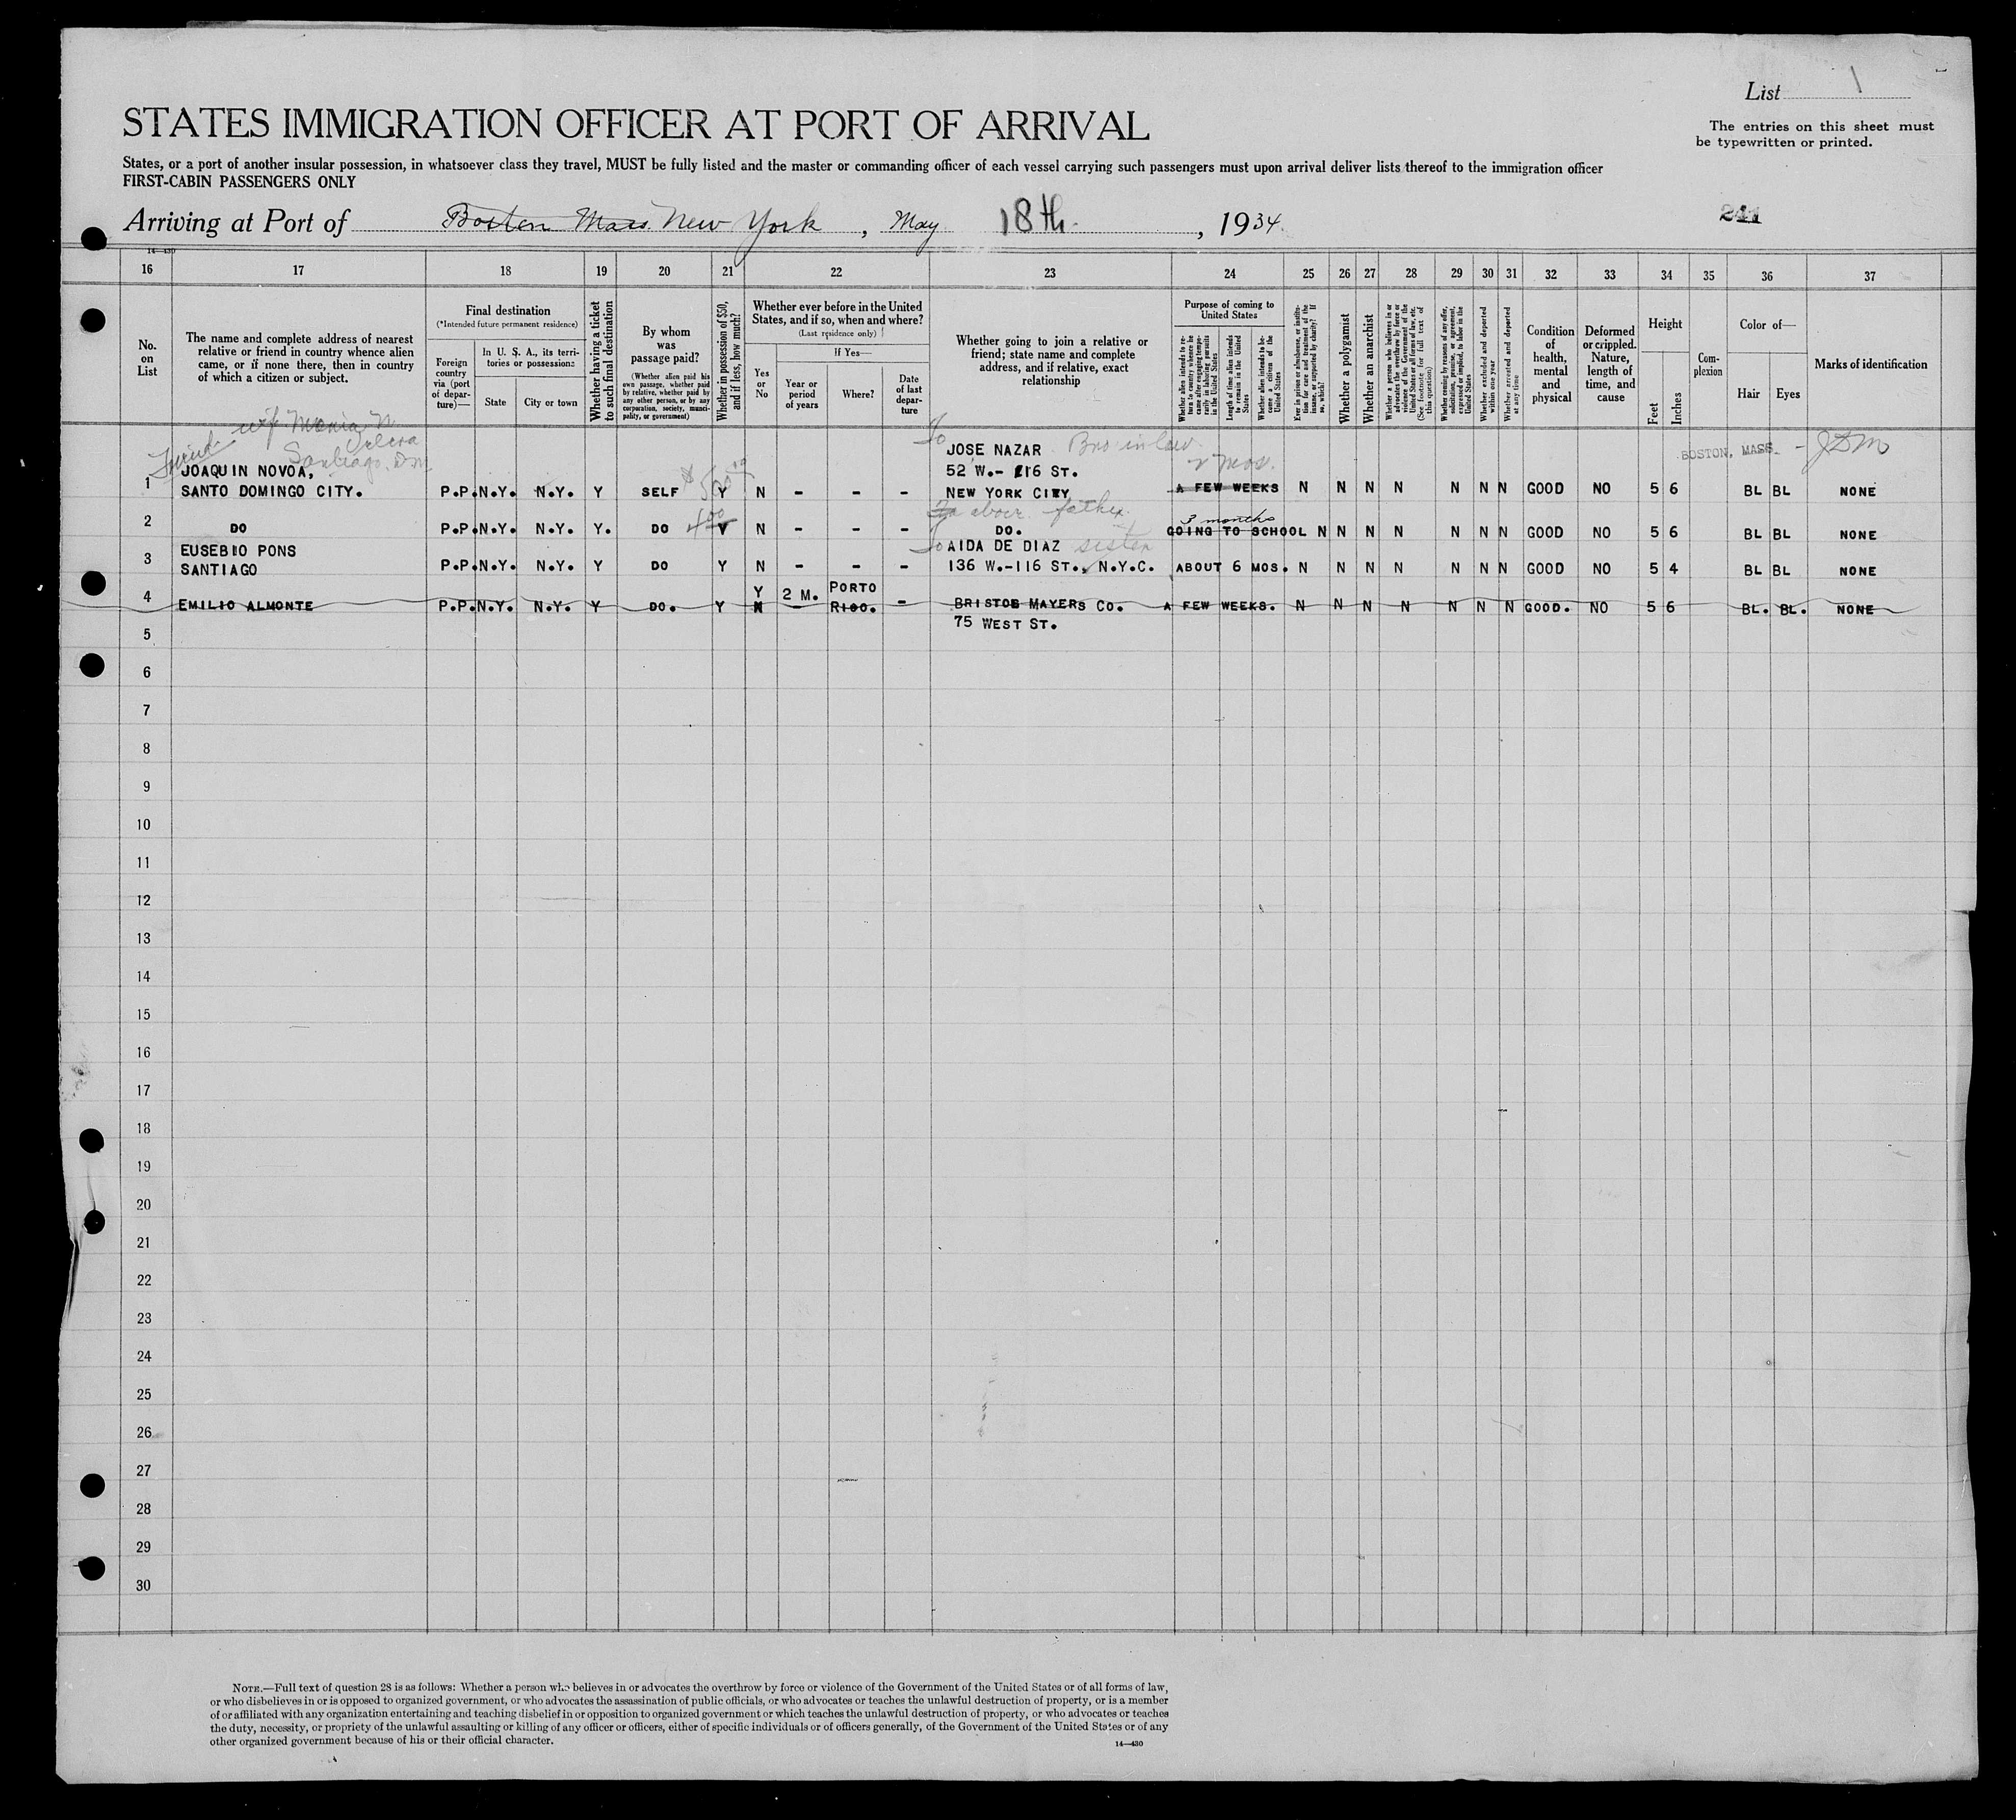 List 1
The entries on this sheet must
be typewritten or printed.
STATES IMMIGRATION OFFICER AT PORT OF ARRIVAL
States, or a port of another insular possession, in whatsoever class they travel, MUST be fully listed and the master or commanding officer of each vessel carrying such passengers must upon arrival deliver lists thereof to the immigration officer
FIRST-CABIN PASSENGERS ONLY
Arriving at Port of Boston Mass. New York, May 18th, 1934
14-430
16 17 18 19 20 21 22 23 24 25 26 27 28 29 30 31 32 33 34 35 36 37
No. on List
The name and complete address of nearest
relative or friend in country whence alien
came, or if none there, then in country
of which a citizen or subject.
Final destination
(*Intended future permanent residence)
Foreign country via (port of departure)—
In U. S. A., its territories or possessions
State
City or town
Whether having a ticket to such final destination
By whom was passage paid?
(Whether alien paid his own passage, whether paid by relative, whether paid by any other person, or by any corporation, society, municipality, or government)
Whether in possession of $50, and if less, how much?
Whether ever before in the United States, and if so, when and where?
(Last residence only)
Yes or No
If Yes—
Year or period of years
Where?
Date of last departure
Whether going to join a relative or
friend; state name and complete
address, and if relative, exact
relationship
Purpose of coming to United States
Whether alien intends to return to country whence he came after engaging temporarily in laboring pursuits in the United States
Length of time alien intends to remain in the United States
Whether alien intends to become a citizen of the United States
Ever in prison or almshouse, or institution for care and treatment of the insane, or supported by charity? If so, which?
Whether a polygamist
Whether an anarchist
Whether a person who believes in or advocates the overthrow by force or violence of the Government of the United States or all forms of law, etc. (See footnote for full text of this question)
Whether coming by reasons of any offer, solicitation, promise, or agreement, expressed or implied, to labor in the United States
Whether excluded and deported within one year
Whether arrested and deported at any time
Condition of health, mental and physical
Deformed or crippled. Nature, length of time, and cause
Height
Feet
Inches
Complexion
Color of—
Hair
Eyes
Marks of identification
Santiago, D.M.
To JOSE NAZAR Bro in law
BOSTON, MASS.
JOAQUIN NOVOA, 52 W.- 116 ST. 2 mos.
1 SANTO DOMINGO CITY. P.P. N.Y. N.Y. Y SELF Y N - - - NEW YORK CITY A FEW WEEKS N N N N N N N GOOD NO 5 6 BL BL NONE
above father 3 months
2 DO P.P. N.Y. N.Y. Y. DO Y N - - - DO. GOING TO SCHOOL N N N N N N N GOOD NO 5 6 BL BL NONE
EUSEBIO PONS To AIDA DE DIAZ sister
3 SANTIAGO P.P. N.Y. N.Y. Y DO Y N - - - 136 W.-116 ST., N.Y.C. ABOUT 6 MOS. N N N N N N N GOOD NO 5 4 BL BL NONE
Y 2 M. PORTO
4 EMILIO ALMONTE P.P. N.Y. N.Y. Y DO. Y N - RICO. - BRISTOE MAYERS CO. A FEW WEEKS. N N N N N N N GOOD. NO 5 6 BL. BL. NONE
5 75 WEST ST.
6
7
8
9
10
11
12
13
14
15
16
17
18
19
20
21
22
23
24
25
26
27
28
29
30
NOTE.—Full text of question 28 is as follows: Whether a person who believes in or advocates the overthrow by force or violence of the Government of the United States or of all forms of law,
or who disbelieves in or is opposed to organized government, or who advocates the assassination of public officials, or who advocates or teaches the unlawful destruction of property, or is a member
of or affiliated with any organization entertaining and teaching disbelief in or opposition to organized government or which teaches the unlawful destruction of property, or who advocates or teaches
the duty, necessity, or propriety of the unlawful assaulting or killing of any officer or officers, either of specific individuals or of officers generally, of the Government of the United States or of any
other organized government because of his or their official character.
14—430